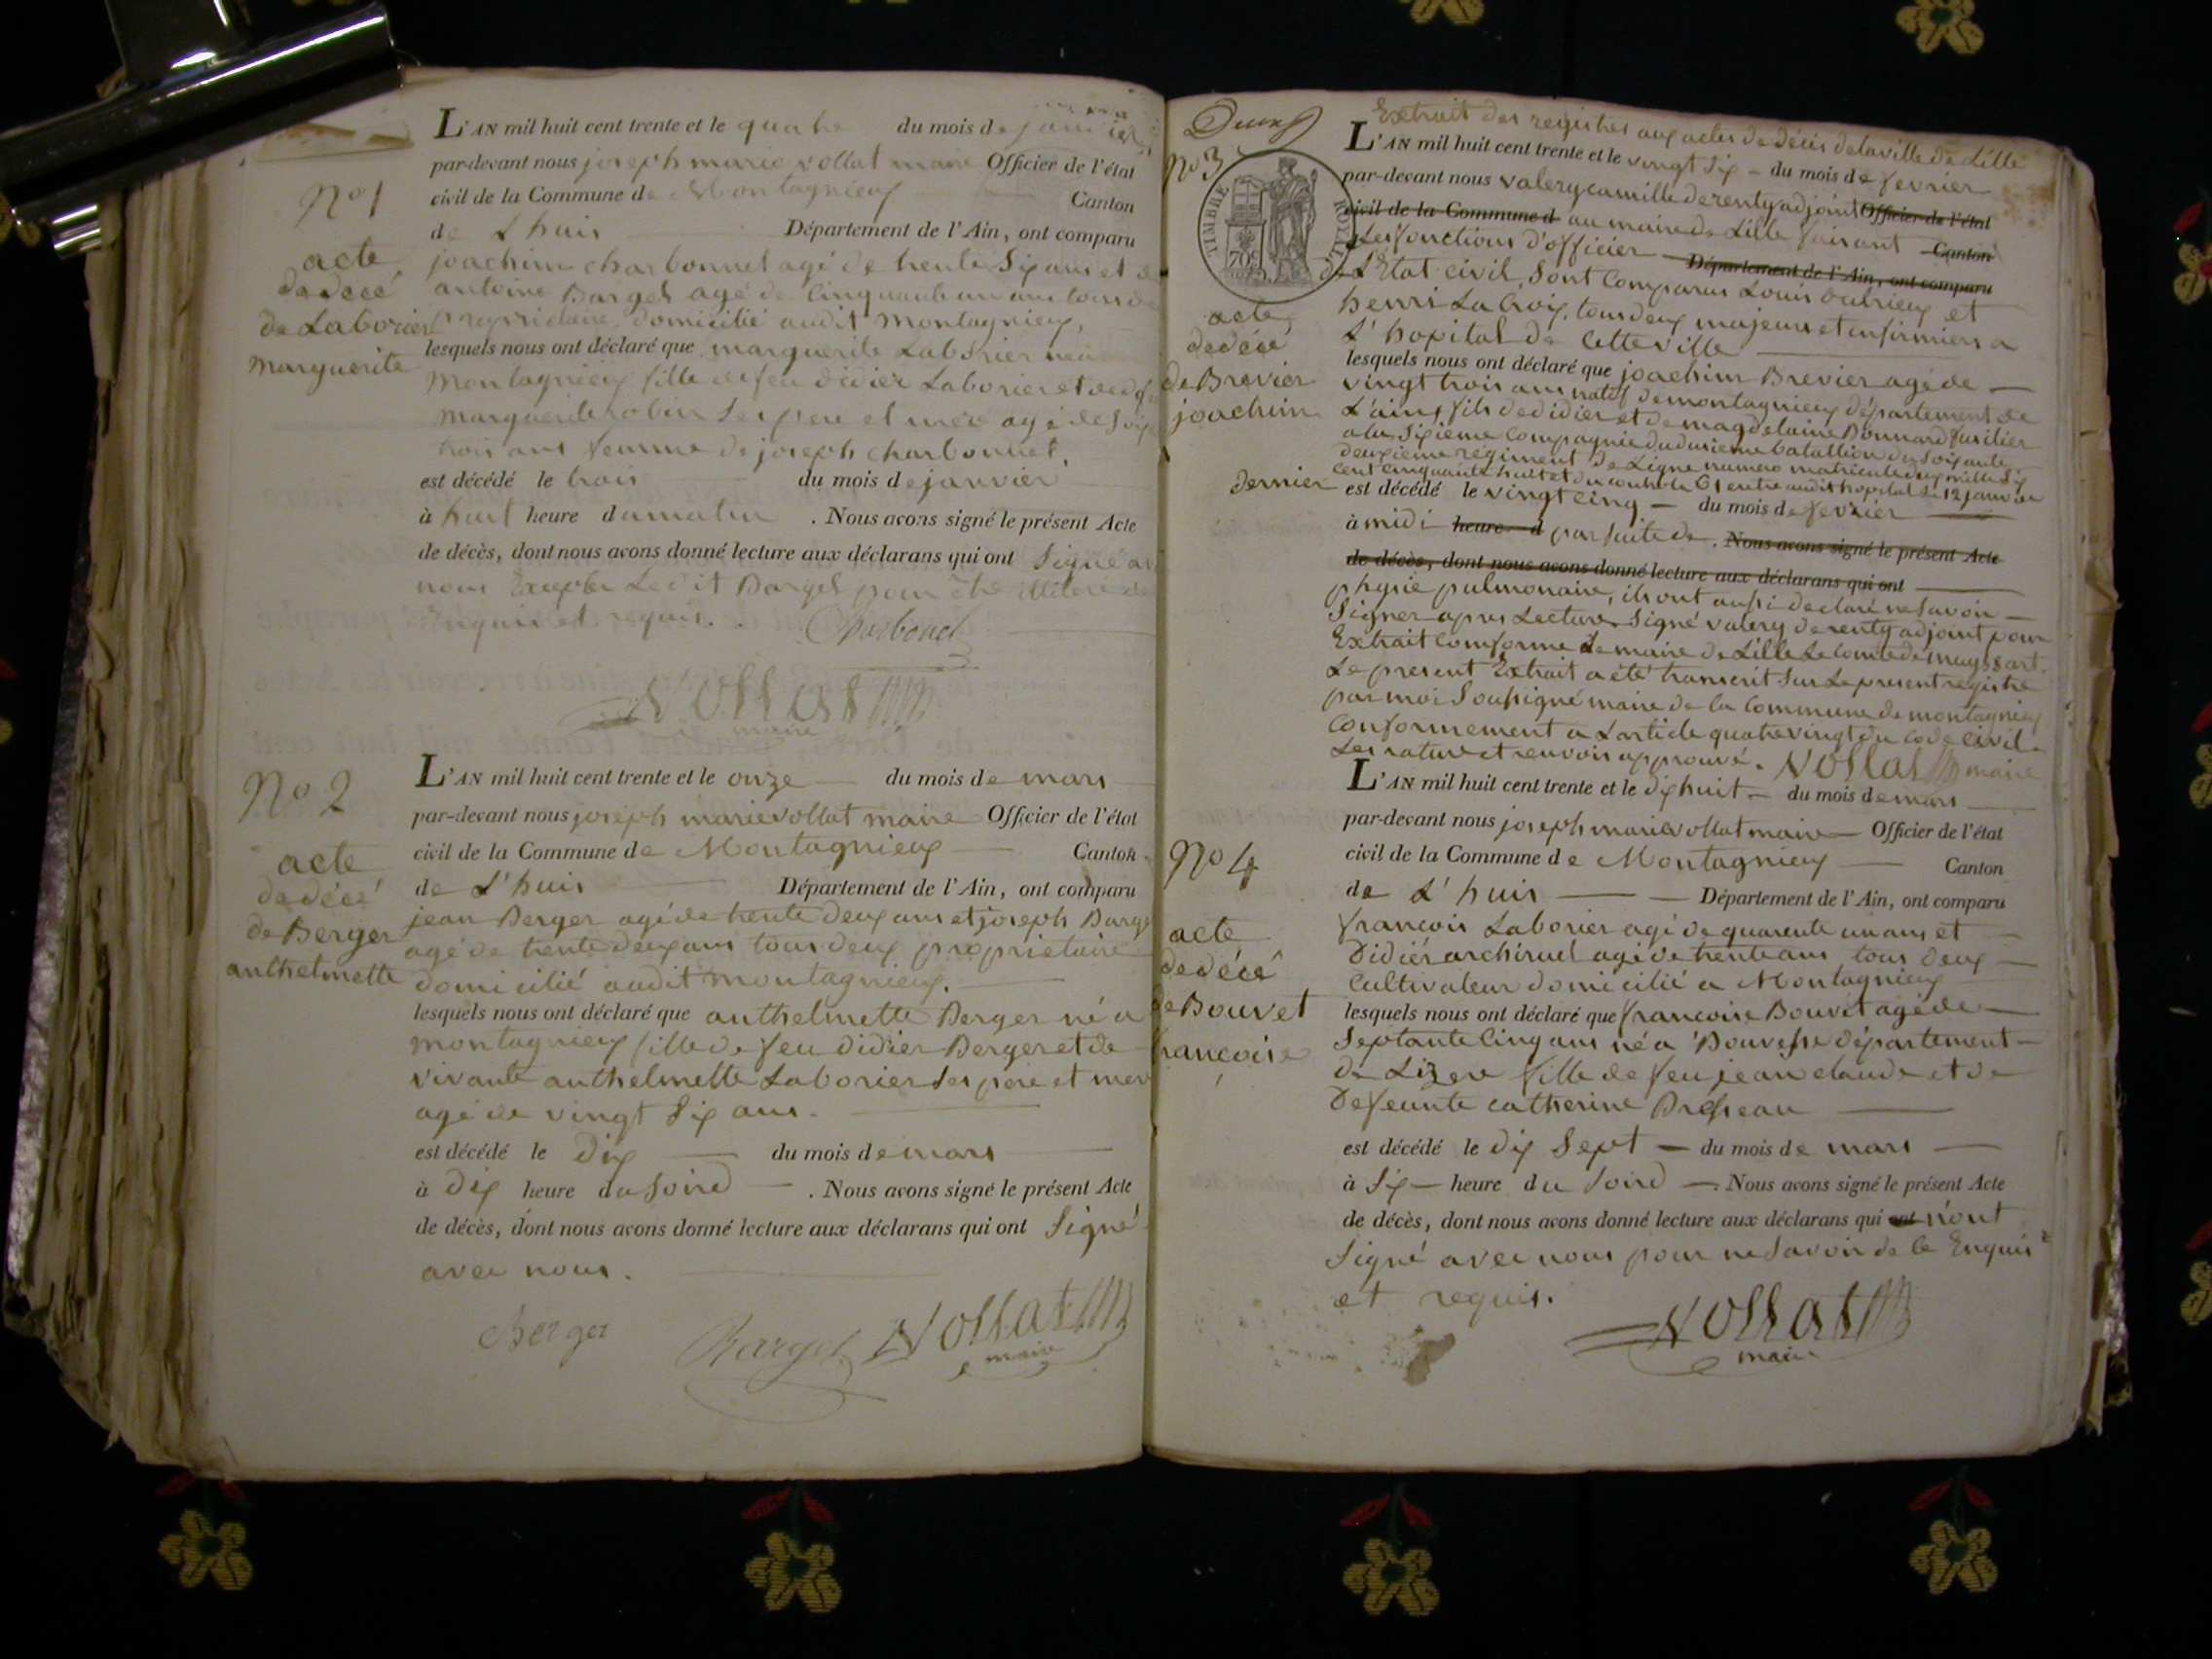 L'AN mil huit cent trente et le quatre du mois de janvier
par-devant nous joseph marie vollat maire Officier de l'état
civil de la Commune de Montagnieux Canton
de L'huis Département de l'Ain, ont comparu
No 1
acte
de décé
de Laborier
marguerite
joachim charbonnet agé de trente Six ans et
antoine Barges agé de Cinquante un ans tous
proprietaire domicilié audit montagnieux,
lesquels nous ont déclaré que marguerite Laborier née
Montagnieux fille de feu didier Laborier et de
marguerite robin Ses pere et mere agé de
trois ans femme de joseph charbonnet,
est décédé le trois du mois de janvier
à huit heure du matin . Nous avons signé le présent Acte
de décès, dont nous avons donné lecture aux déclarans qui ont Signé
nous Excepter Ledit Barges pour être illiteré de
Enquis et requis.
Charbonet
Vollat
maire
No 2
acte
de décé
de Berger
anthelmette
L'AN mil huit cent trente et le onze du mois de mars
par-devant nous joseph marie vollat maire Officier de l'état
civil de la Commune de Montagnieux Canton
de L'huis Département de l'Ain, ont comparu
jean Berger agé de trente deux ans et joseph Barge
agé de trente deux ans tous deux proprietaire
domicilié audit montagnieux.
lesquels nous ont déclaré que anthelmette Berger né a
montagnieux fille de feu didier Berger et de
vivante anthelmette Laborier Ses pere et mere
agé de vingt Six ans.
est décédé le dix du mois de mars
à dix heure du Soird . Nous avons signé le présent Acte
de décès, dont nous avons donné lecture aux déclarans qui ont Signé
avec nous.
Berger Barget Vollat
maire
Deux
No 3
TIMBRE ROYAL
70c
acte
de décé
de Brevier
joachim
dernier
Extrait des registres aux actes de décès de la ville de Lille
L'AN mil huit cent trente et le vingt Six du mois de fevrier
par-devant nous valery camille derenty adjoint Officier de l'état
civil de la Commune d au maire de Lille faisant Canton
Les fonctions d'officier Département de l'Ain, ont comparu
de L'Etat civil, Sont Comparus Louis et
henri Lacroix, tous deux majeurs et infirmiers a
L'hopital de Cette ville
lesquels nous ont déclaré que joachim Brevier agé de
vingt trois ans natif de montagnieux département de
L'ain, fils de didier et de magdelaine Bonnard fusilier
a la Sixieme Compagnie du batallion du Soixante
deuxieme régiment de Ligne numero matricule deux mille Six
cent cinquante huit et du controle 61 entré audit hopital le 12 janvier
est décédé le vingt cinq du mois de fevrier
à midi heure d par Suite de . Nous avons signé le présent Acte
de décès, dont nous avons donné lecture aux déclarans qui ont
physie pulmonaire, ils ont aussi declaré ne Savoir
Signer apres Lecture. Signé valery derenty adjoint pour
Extrait Comforme Le maire de Lille Le Comte de muyssart.
Le present Extrait a été transcrit Sur Le present registre
par moi Soussigné maire de la Commune de montagnieux
Conformement a L'article quatrevingt du code civil.
Les rature et renvois approuvé. Vollat maire
No 4
acte
de décé
de Bouvet
françoise
L'AN mil huit cent trente et le dix huit du mois de mars
par-devant nous joseph marie vollat maire Officier de l'état
civil de la Commune de Montagnieux Canton
de L'huis Département de l'Ain, ont comparu
francois Laborier agé de quarente un ans et
Didier archiruel agé de trente ans tous deux
Cultivateur domicilié a Montagnieux
lesquels nous ont déclaré que francoise Bouvet agé de
Septante Cinq ans né a Bouvesse département
de Lizere fille de feu jean claude et de
Defeunte catherine
est décédé le dix Sept du mois de mars
à Six heure du Soird . Nous avons signé le présent Acte
de décès, dont nous avons donné lecture aux déclarans qui ont n'ont
Signé avec nous pour ne Savoir de ce Enquis
et requis.
Vollat
maire